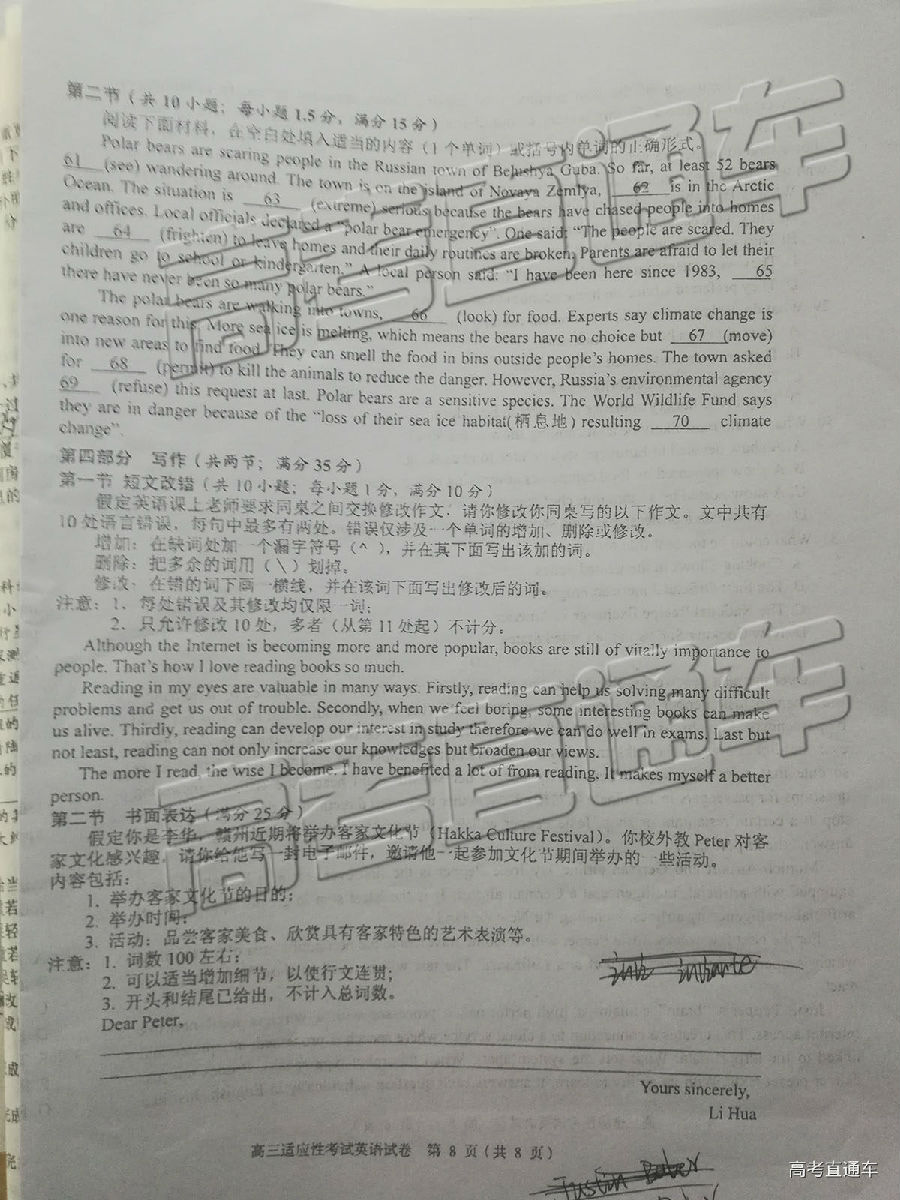 第二节（共 10 小题；每小题 1.5 分，满分 15 分）
阅读下面材料，在空白处填入适当的内容（1 个单词）或括号内单词的正确形式。
Polar bears are scaring people in the Russian town of Belushya Guba. So far, at least 52 bears
61 (see) wandering around. The town is on the island of Novaya Zemlya, 62 is in the Arctic
Ocean. The situation is 63 (extreme) serious because the bears have chased people into homes
and offices. Local officials declared a “polar bear emergency”. One said: “The people are scared. They
are 64 (frighten) to leave homes and their daily routines are broken. Parents are afraid to let their
children go to school or kindergarten.” A local person said: “I have been here since 1983, 65
there have never been so many polar bears.”
The polar bears are walking into towns, 66 (look) for food. Experts say climate change is
one reason for this. More sea ice is melting, which means the bears have no choice but 67 (move)
into new areas to find food. They can smell the food in bins outside people’s homes. The town asked
for 68 (permit) to kill the animals to reduce the danger. However, Russia’s environmental agency
69 (refuse) this request at last. Polar bears are a sensitive species. The World Wildlife Fund says
they are in danger because of the “loss of their sea ice habitat(栖息地) resulting 70 climate
change”.
第四部分 写作（共两节；满分 35 分）
第一节 短文改错（共 10 小题；每小题 1 分，满分 10 分）
假定英语课上老师要求同桌之间交换修改作文，请你修改你同桌写的以下作文。文中共有
10 处语言错误，每句中最多有两处。错误仅涉及一个单词的增加、删除或修改。
增加：在缺词处加一个漏字符号（^），并在其下面写出该加的词。
删除：把多余的词用（\）划掉。
修改：在错的词下画一横线，并在该词下面写出修改后的词。
注意：1. 每处错误及其修改均仅限一词；
2. 只允许修改 10 处，多者（从第 11 处起）不计分。
Although the Internet is becoming more and more popular, books are still of vitally importance to
people. That’s how I love reading books so much.
Reading in my eyes are valuable in many ways. Firstly, reading can help us solving many difficult
problems and get us out of trouble. Secondly, when we feel boring, some interesting books can make
us alive. Thirdly, reading can develop our interest in study therefore we can do well in exams. Last but
not least, reading can not only increase our knowledges but broaden our views.
The more I read, the wise I become. I have benefited a lot of from reading. It makes myself a better
person.
第二节 书面表达（满分 25 分）
假定你是李华，赣州近期将举办客家文化节（Hakka Culture Festival）。你校外教 Peter 对客
家文化感兴趣，请你给他写一封电子邮件，邀请他一起参加文化节期间举办的一些活动。
内容包括：
1. 举办客家文化节的目的；
2. 举办时间；
3. 活动：品尝客家美食、欣赏具有客家特色的艺术表演等。
注意：1. 词数 100 左右；
2. 可以适当增加细节，以使行文连贯；
3. 开头和结尾已给出，不计入总词数。
Dear Peter,
Yours sincerely,
Li Hua
高三适应性考试英语试卷 第 8 页（共 8 页）
高考直通车
高考直通车
高考直通车